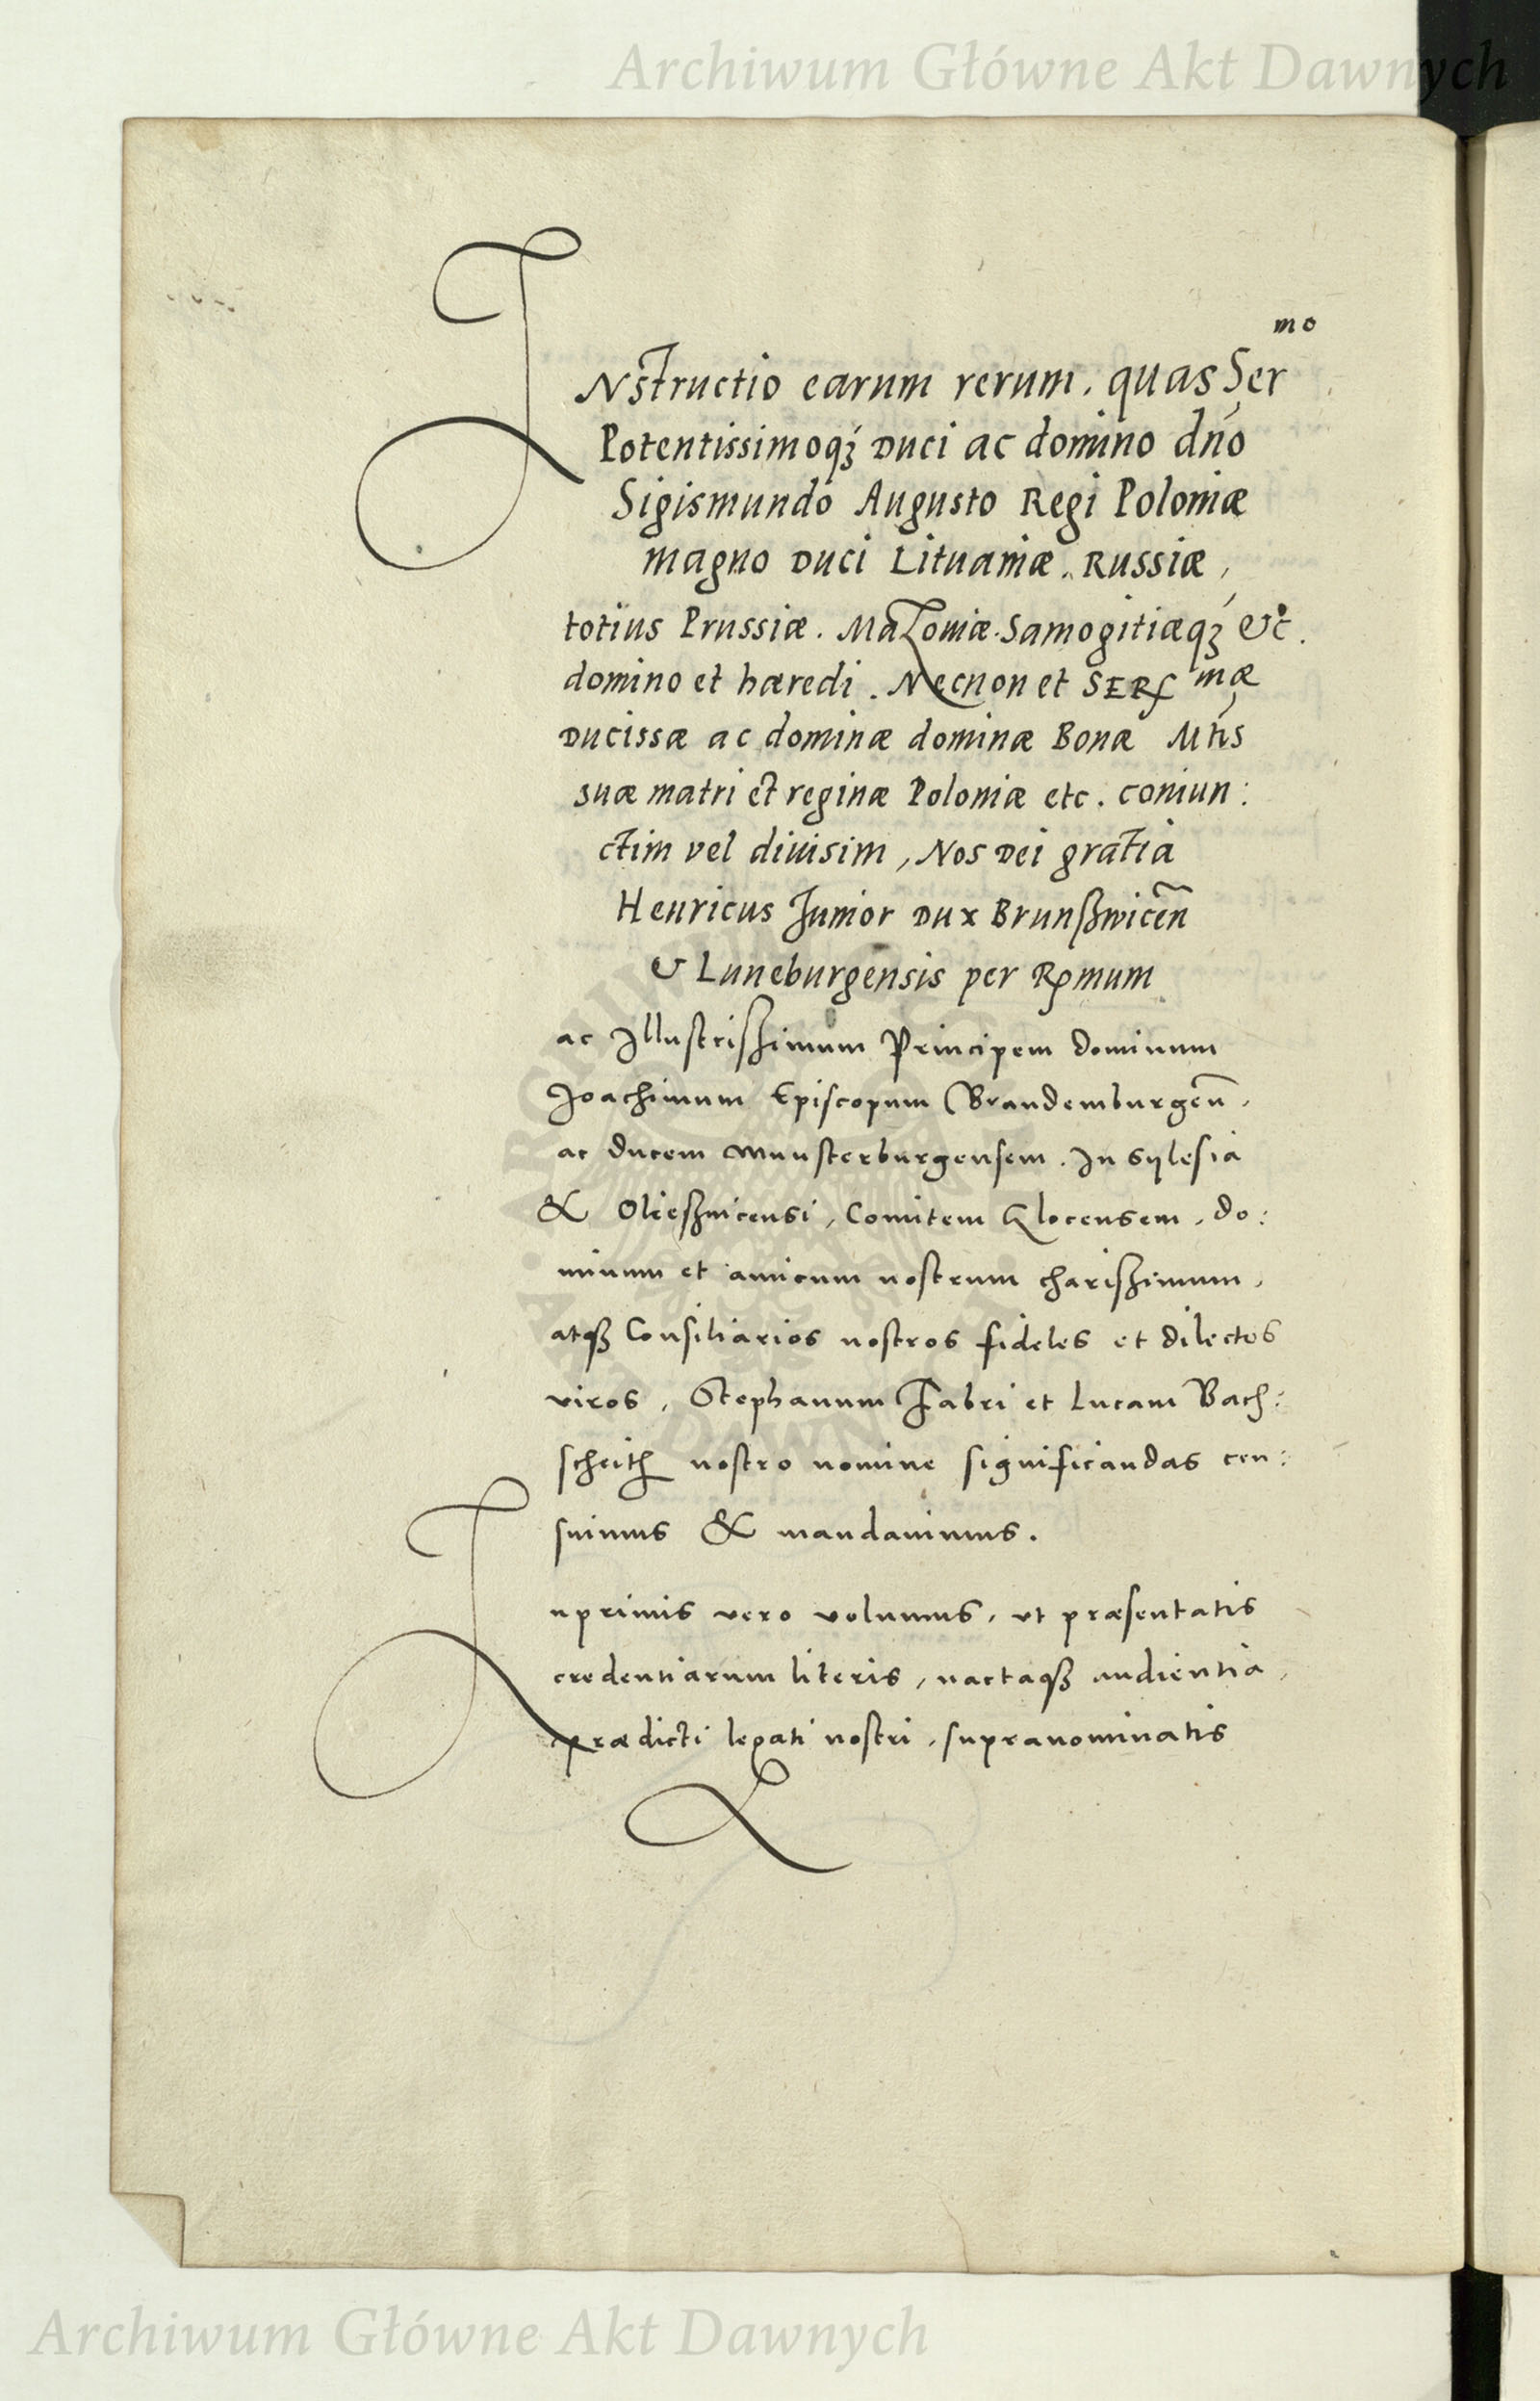 Archiwum Główne Akt Dawnych
INstructio earum rerum, quas Ser^mo
Potentissimoqꝫ Duci ac domino dno
Sigismundo Augusto Regi Poloniæ
magno Duci Lituaniæ, Russiæ,
totius Prussiæ. Mazoniæ. Samogitiæqꝫ &c.
domino et hæredi. Necnon et SER^mæ
Ducissæ ac dominæ dominæ Bonæ Mtis
suæ matri et reginæ Poloniæ etc. coniun:
ctim vel diuisim, Nos Dei gratia
Henricus Junior Dux Brunßwicen
& Luneburgensis per Rmum
ac Illustrißimum Principem dominum
Joachimum Episcopum Brandemburgen,
ac ducem Munsterburgensem. In Sylesia
& Oließnicensi, Comitem Glocensem, do:
minum et amicum nostrum charißimum,
atqꝫ Consiliarios nostros fideles et dilectos
viros, Stephanum Fabri et Lucam Bach:
scheith nostro nomine significandas cen:
suimus & mandauimus.
Inprimis vero volumus, vt præsentatis
credentiarum literis, nactaqꝫ audientia,
prædicti legati nostri, supranominatis
Archiwum Główne Akt Dawnych